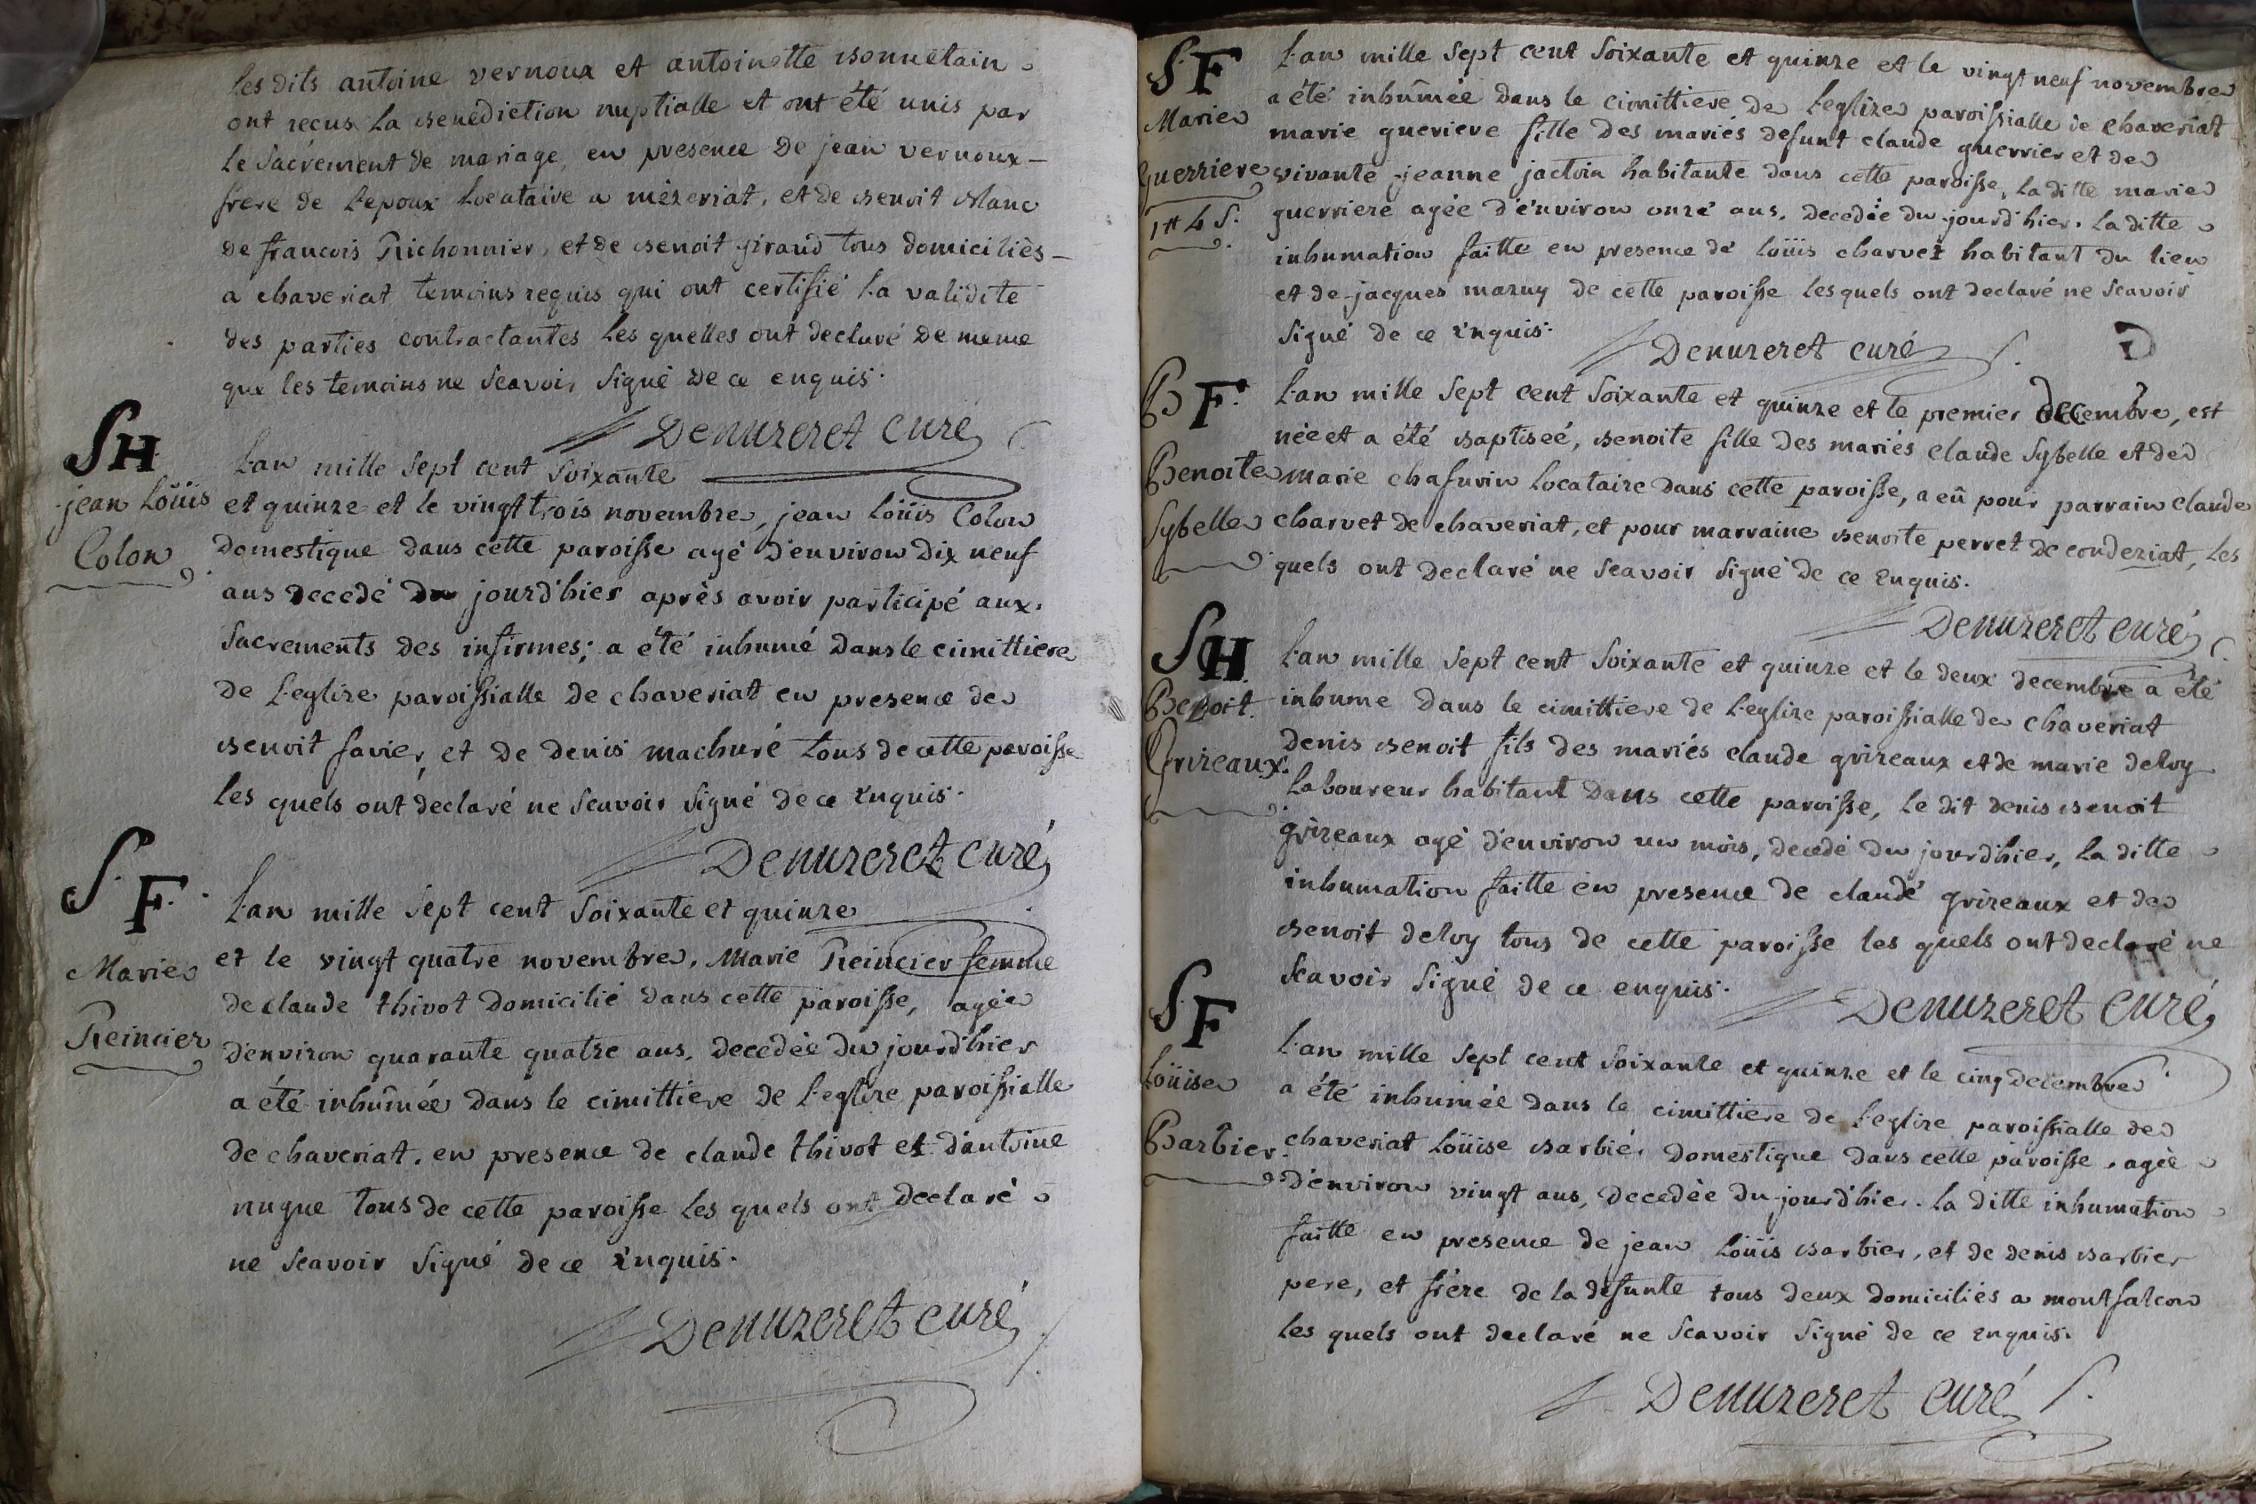 les dits antoine vernoux et antoinette bonnetain
ont recus la benediction nuptialle et ont été unis par
le sacrement de mariage, en presence de jean vernoux
frere de l'epoux locataire a mézeriat, et de benoit blanc
de francois Richonnier, et de benoit giraud tous domiciliès
a chaveriat temoins requis qui ont certifié la validité
des parties contractantes les quelles ont declaré de meme
que les temoins ne scavoir signé de ce enquis.
Denuzeret curé
SH
jean Loüis
Colon
L'an mille sept cent soixante
et quinze et le vingt trois novembre, jean loüis Colon
domestique dans cette paroisse agé d'environ dix neuf
ans decedé du jourd'hier après avoir participé aux
sacrements des infirmes; a été inhumé dans le cimittiere
de l'eglize paroissialle de chaveriat en presence de
benoit favier, et de denis machuré tous de cette paroisse
les quels ont declaré ne scavoir signé de ce enquis.
Denuzeret curé
S. F.
Marie
Reincier
L'an mille sept cent soixante et quinze
et le vingt quatre novembre, Marie Reincier femme
de claude thivot domicilié dans cette paroisse, agée
d'environ quarante quatre ans, decedée du jourd'hier
a été inhûmée dans le cimittiere de l'eglize paroissialle
de chaveriat, en presence de claude thivot et d'antoine
nugue tous de cette paroisse les quels ont declaré
ne scavoir signé de ce enquis.
Denuzeret curé
SF
Marie
Guerriere
1tt 4 S.
L'an mille sept cent soixante et quinze et le vingt neuf novembre
a été inhûmée dans le cimittiere de l'eglize paroissialle de chaveriat
marie gueriere fille des mariés defunt claude guerrier et de
vivante jeanne jacton habitante dans cette paroisse, la ditte marie
guerriere agée d'environ onze ans, decedée du jourd'hier. la ditte
inhumation faitte en presence de loüis charvet habitant du lieu
et de jacques mazuy de cette paroisse les quels ont declaré ne scavoir
signé de ce enquis.
Denuzeret curé
D
BF.
Benoite
Sybelle
L'an mille sept cent soixante et quinze et le premier decembre, est
née et a été baptiseé, benoite fille des mariés claude sybelle et de
marie chasurin locataire dans cette paroisse, a eû pour parrain claude
charvet de chaveriat, et pour marraine benoite perret de condeziat, les
quels ont declaré ne scavoir signé de ce enquis.
Denuzeret curé
SH
Benoit
Grizeaux
L'an mille sept cent soixante et quinze et le deux decembre a été
inhume dans le cimittiere de l'eglize paroissialle de chaveriat
denis benoit fils des mariés claude grizeaux et de marie deloy
laboureur habitant dans cette paroisse, le dit denis benoit
grizeaux agé d'environ un mois, decedé du jourd'hier, la ditte
inhumation faitte en presence de claude grizeaux et de
benoit deloy tous de cette paroisse les quels ont declaré ne
scavoir signé de ce enquis.
Denuzeret curé
SF
Loüise
Barbier
L'an mille sept cent soixante et quinze et le cinq decembre
a été inhumée dans le cimittiere de l'eglize paroissialle de
chaveriat loüise barbier domestique dans cette paroisse, agée
d'environ vingt ans, decedée du jourd'hier. la ditte inhumation
faitte en presence de jean loüis barbier, et de denis barbier
pere, et frère de la defunte tous deux domiciliés a montfalcon
les quels ont declaré ne scavoir signé de ce enquis.
Denuzeret curé